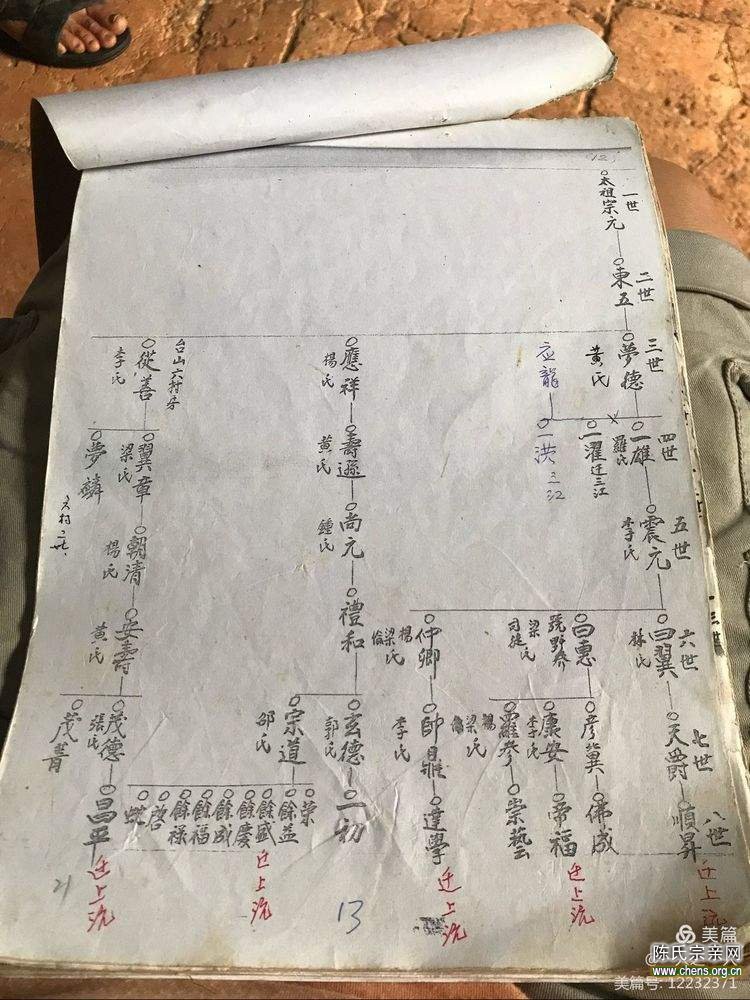 一世
太祖宗元
二世
東五
三世
夢德
黄氏
应龍
應祥
楊氏
台山六村房
從善
李氏
四世
一雄
羅氏
一濯
迁三江
一洪
三江
壽遜
黄氏
翼章
梁氏
夢麟
五世
震元
李氏
尚元
鍾氏
朝清
楊氏
六世
曰翼
林氏
曰惠
號野參
梁
司徒氏
仲卿
楊
梁氏
禮和
安壽
黄氏
七世
天爵
彦冀
康安
李氏
羅參
楊
梁氏
帥鼎
李氏
玄德
郭氏
宗道
邵氏
茂德
張氏
茂菁
八世
順昇
佛成
帝福
崇藝
達學
一初
榮
餘益
餘盛
餘慶
餘成
餘福
餘禄
啓
昌平
迁上沇
迁上沇
迁上沇
迁上沇
迁上沇
21
13
12
美篇
陈氏宗亲网
www.chens.org.cn
美篇号: 12232371